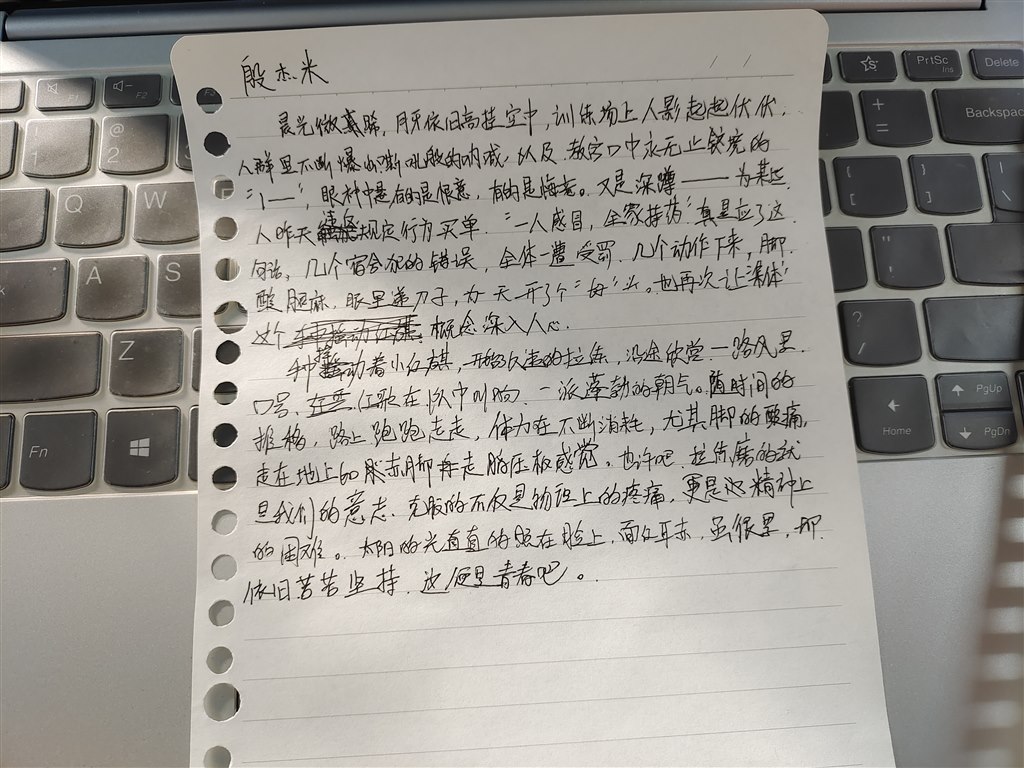 殷杰米
晨光微熹际，月牙依旧高挂空中，训练场上人影起起伏伏，
人群里不断爆出嘶吼般的呐喊，以及教官口中永无止境的
“1—”，眼神中是有的是恨意，有的是悔意。又是深蹲——为某些
人昨天违反规定行为买单。“一人感冒，全家接药”真是应了这
句话，几个宿舍犯的错误，全体一遭受罚，几个动作下来，脚
酸腿麻，眼里差刀子，为一天开了个“好”头。也再次让“集体”
这个概念深入人心。
挥动着小红旗，开始
口号、红歌在队中叫响，一派蓬勃的朝气。随时间的
推移，路上跑跑走走，体力在不断消耗，尤其脚的酸痛，
走在地上如般感觉。也许吧，拉练磨的就
是我们的意志，克服的不仅是物理上的疼痛，更是精神上
的困难。太阳的光直直的照在脸上，面红耳赤，虽很累，却
依旧苦苦坚持，这便是青春吧。
Q
W
A
S
Z
Fn
@
2
+
=
PrtSc
Ins
Delete
Backspac
?
/
Home
PgUp
PgDn
F2